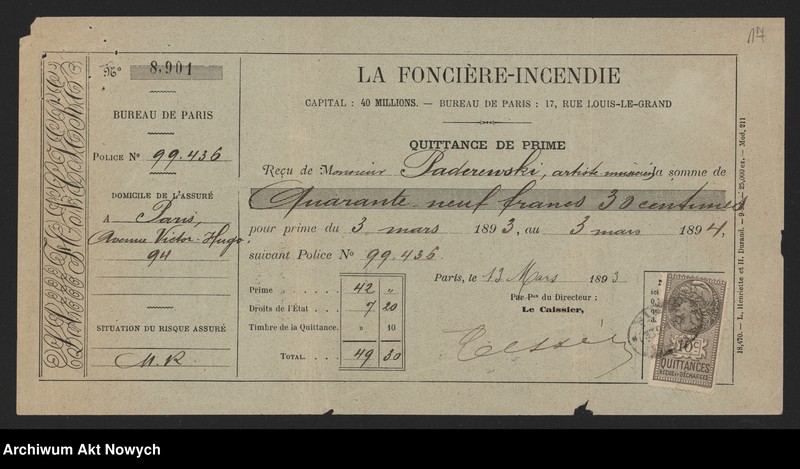 17
LA FONCIÈRE-INCENDIE
Nº 8.901
BUREAU DE PARIS
POLICE Nº 99.436
DOMICILE DE L'ASSURÉ
A Paris,
Avenue Victor-Hugo,
94
SITUATION DU RISQUE ASSURÉ
M. R.
LA FONCIÈRE-INCENDIE
CAPITAL : 40 MILLIONS. — BUREAU DE PARIS : 17, RUE LOUIS-LE-GRAND
QUITTANCE DE PRIME
Reçu de Monsieur Paderewski, artiste musicien la somme de
Quarante neuf francs 30 centimes
pour prime du 3 mars 1893, au 3 mars 1894,
suivant Police Nº 99.436
Paris, le 13 Mars 1893
Prime . . . . . 42 "
Droits de l'État . . . 7 20
Timbre de la Quittance. " 10
TOTAL. . . . . 49 30
Par Pon du Directeur :
Le Caissier,
10c
QUITTANCES
REÇUS ET DÉCHARGES
18,670. — L. Henriette et H. Durand. — 25,000 ex. — Mod. 211
Archiwum Akt Nowych